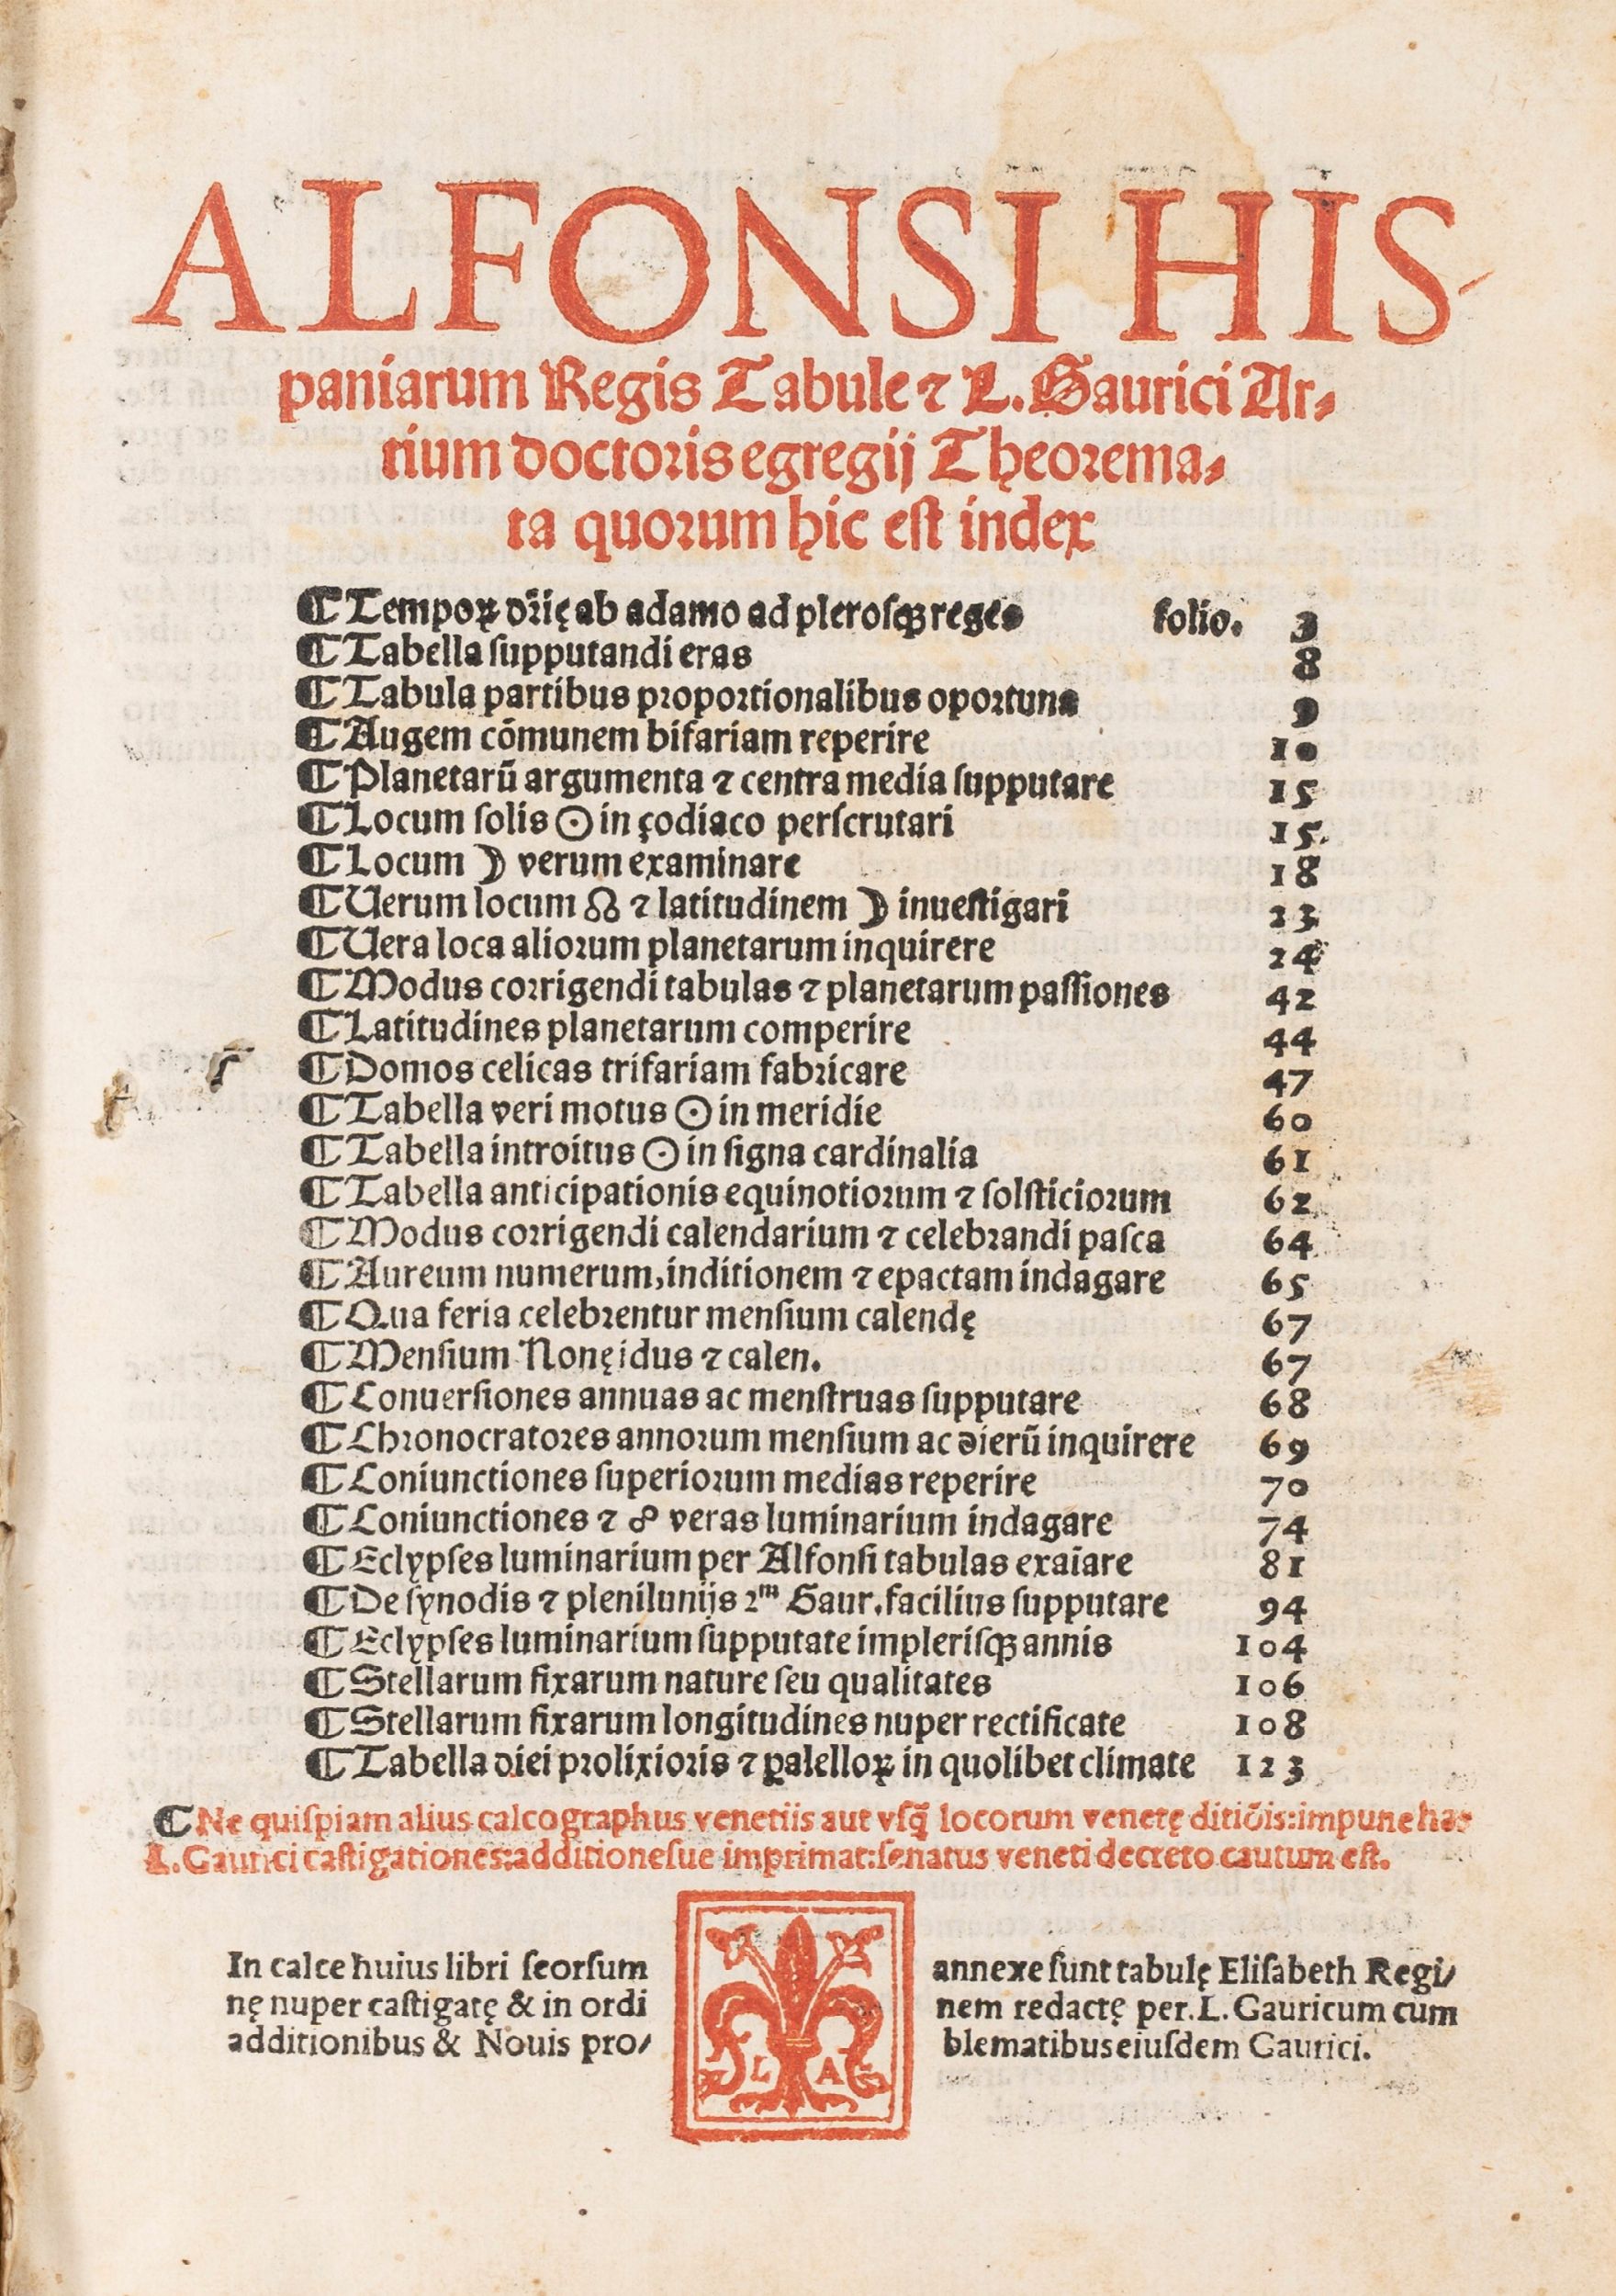 ALFONSI HIS-
paniarum Regis Tabule ⁊ L. Gaurici Ar-
tium doctoris egregij Theorema-
ta quorum hic est index
¶ Tempoꝝ dr̄ię ab adamo ad plerosqꝫ reges folio. 3
¶ Tabella supputandi eras 8
¶ Tabula partibus proportionalibus oportuna 9
¶ Augem cōmunem bifariam reperire 10
¶ Planetarū argumenta ⁊ centra media supputare 15
¶ Locum solis ☉ in çodiaco perscrutari 15
¶ Locum ☽ verum examinare 18
¶ Uerum locum ☊ ⁊ latitudinem ☽ inuestigari 23
¶ Uera loca aliorum planetarum inquirere 24
¶ Modus corrigendi tabulas ⁊ planetarum passiones 42
¶ Latitudines planetarum comperire 44
¶ Domos celicas trifariam fabricare 47
¶ Tabella veri motus ☉ in meridie 60
¶ Tabella introitus ☉ in signa cardinalia 61
¶ Tabella anticipationis equinotiorum ⁊ solsticiorum 62
¶ Modus corrigendi calendarium ⁊ celebrandi pasca 64
¶ Aureum numerum, inditionem ⁊ epactam indagare 65
¶ Qua feria celebrentur mensium calendę 67
¶ Mensium Nonę idus ⁊ calen. 67
¶ Conuersiones annuas ac menstruas supputare 68
¶ Chronocratores annorum mensium ac dierū inquirere 69
¶ Coniunctiones superiorum medias reperire 70
¶ Coniunctiones ⁊ ☍ veras luminarium indagare 74
¶ Eclypses luminarium per Alfonsi tabulas exaīare 81
¶ De synodis ⁊ plenilunijs 2ᵐ Gaur. facilius supputare 94
¶ Eclypses luminarium supputate implerisqꝫ annis 104
¶ Stellarum fixarum nature seu qualitates 106
¶ Stellarum fixarum longitudines nuper rectificate 108
¶ Tabella diei prolixioris ⁊ ꝑalelloꝝ in quolibet climate 123
¶ Ne quispiam alius calcographus venetiis aut vsq̄ȝ locorum venetę ditiōis: impune has
L. Gaurici castigationes: additionesue imprimat: senatus veneti decreto cautum est.
In calce huius libri seorsum annexe sunt tabulę Elisabeth Regi/
nę nuper castigatę & in ordi nem redactę per. L. Gauricum cum
additionibus & Nouis pro/ blematibus eiusdem Gaurici.
L A